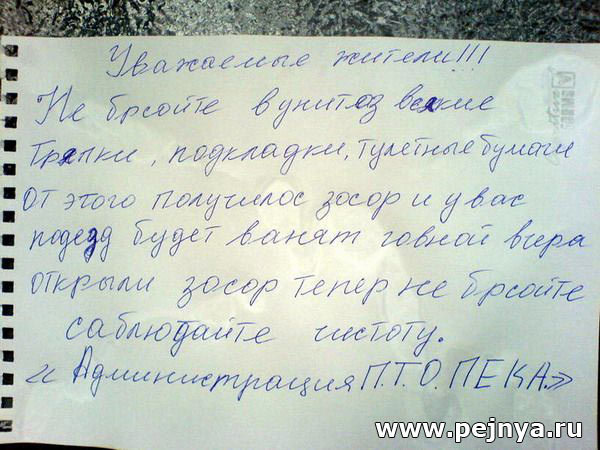 Уважаемые жители!!!
Не брсойте в унитоз всякие
Тряпки, подкладки, тулетные бумаги
От этого получилос зосор и у вас
подезд будет ванят говной вчера
открыли зосор тепер не брсойте
саблюдайте чистоту.
« Администрация П.Т.О. ПЕКА.»
www.pejnya.ru